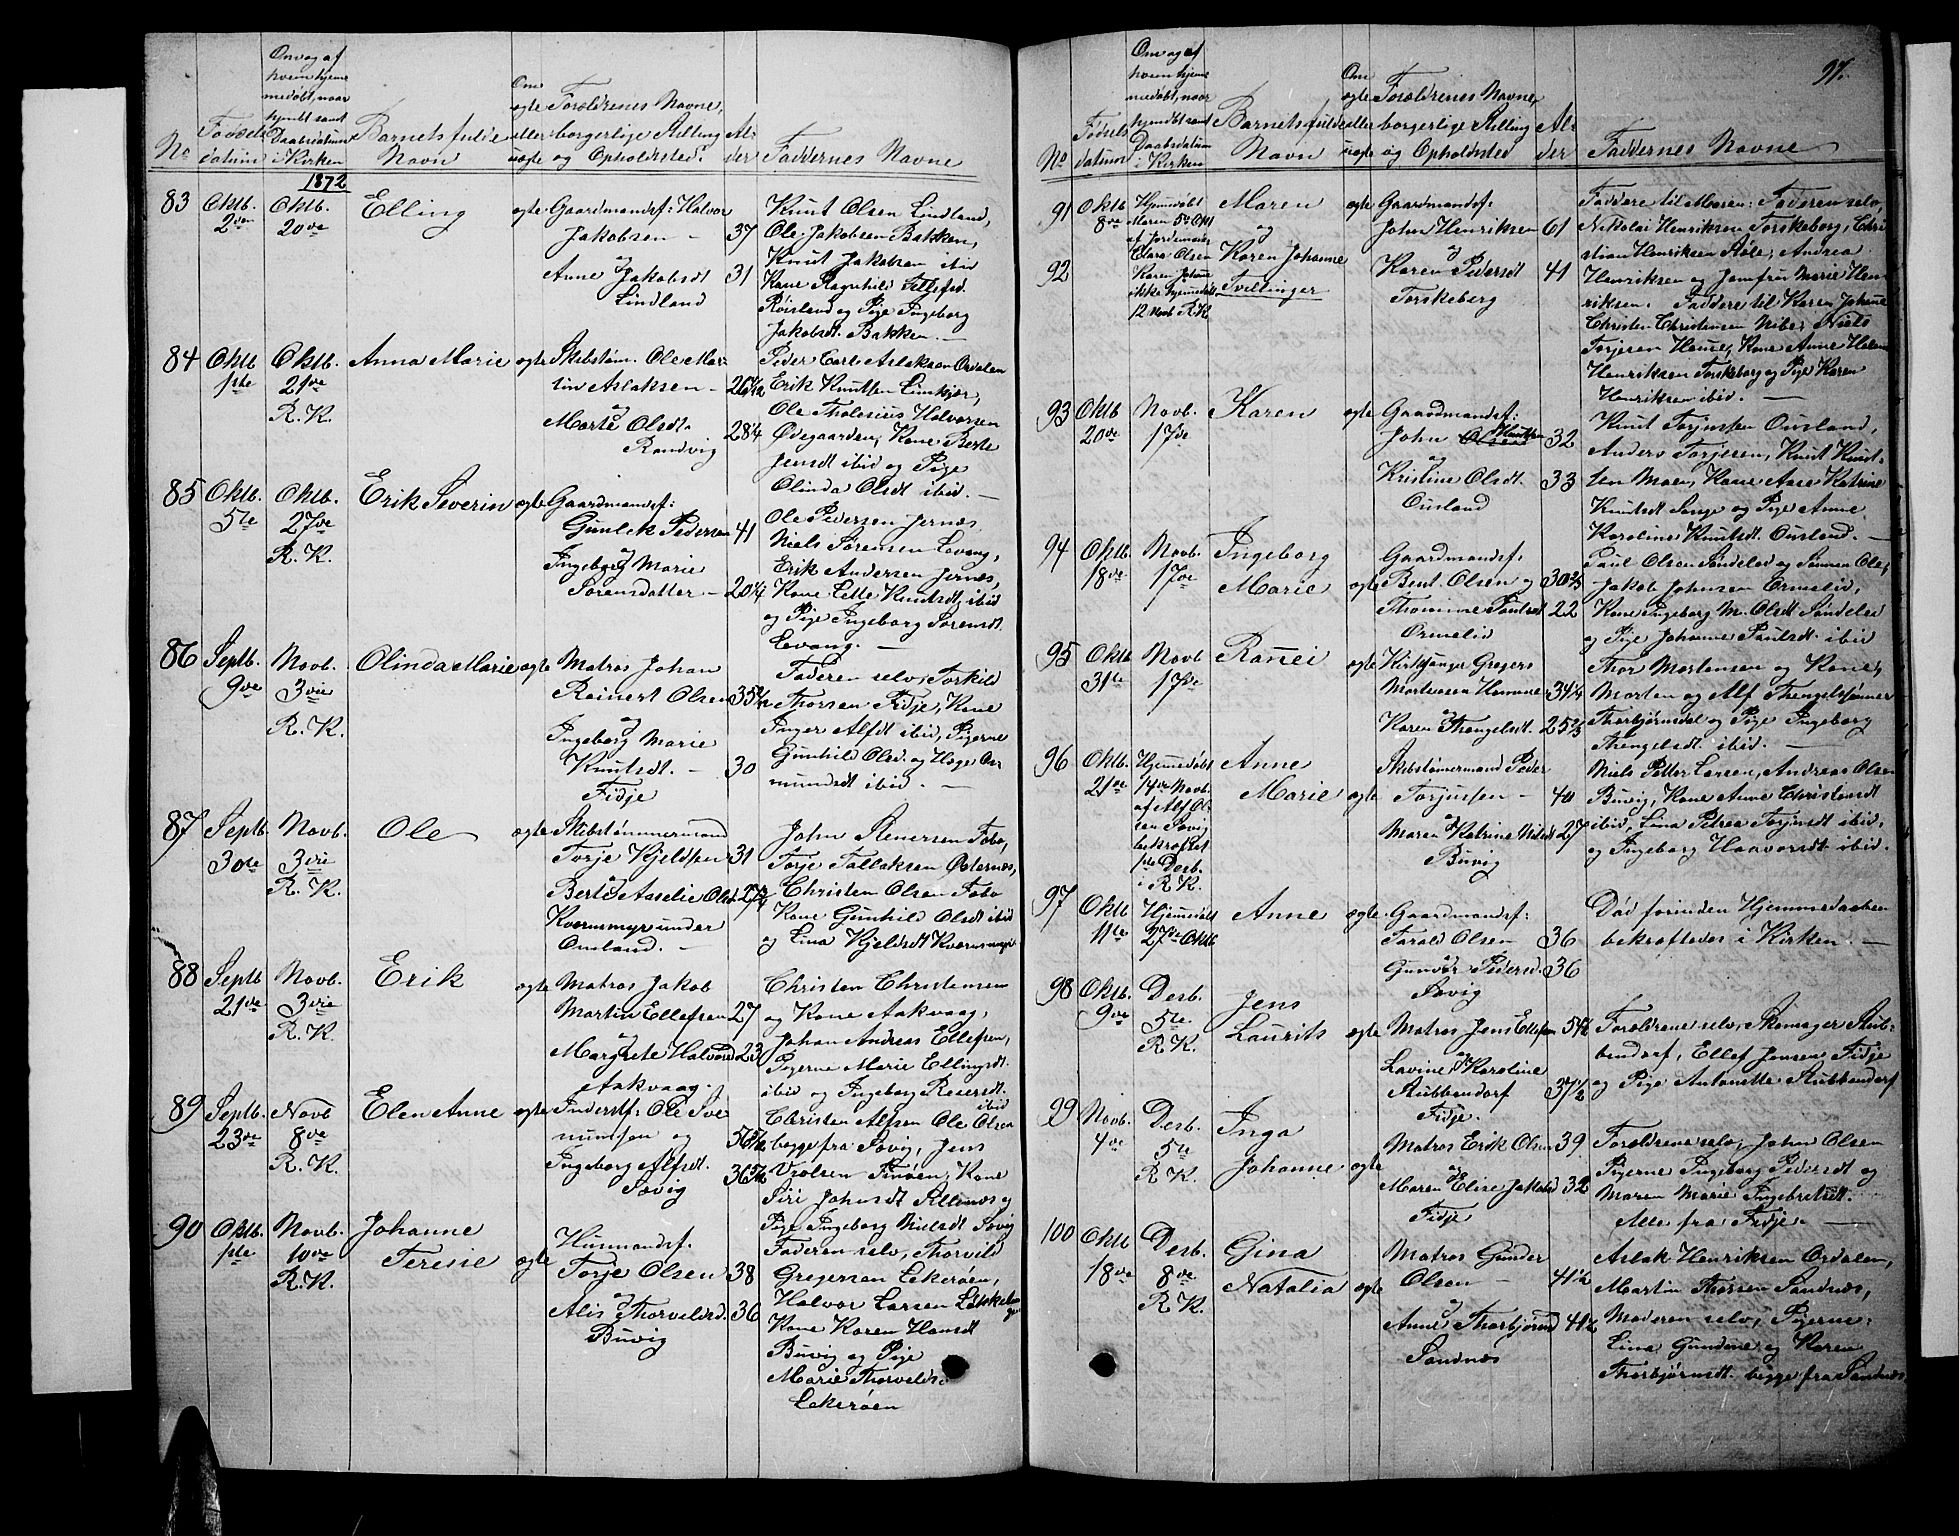 97.
Om og af
hvem hjem
medøbt, naar
hjmdbt samt
Daabsdatum
i Kirken
No
Fødsels
datum
Barnets fulde
Navn
Om
ægte
eller
uægte
Forældrenes Navne,
borgerlige Stilling
og Opholdsted.
Al-
der
Faddernes Navne
1872
83
Oktb.
2den
Oktb.
20de
Elling
ægte
Gaardmandsf: Halvor
Jakobsen - 37
og
Anne Jakobsdt 31
Lindland
Knut Olsen Lindland,
Ole Jakobsen Bakken,
Knut Jakobsen ibid
Kone Ragnhild Tellefsd.
Røisland og Pige Ingeborg
Jakobsdt. Bakken. -
84
Oktb
1ste
Oktb.
21de
R. K.
Anna Marie
ægte
Skibstøm. Ole Mar-
tin Aslaksen -
og
Marte Olsdt.
28 1/4
Randvig
Peder Carl Aslaksen Ordalen
Erik Knutsen Limkjær,
Ole Tholesius Halvorsen
Ødegaarden, Kone Berte
Jensdt ibid og Pige
Olinda Olsdt ibid. -
85
Oktb.
5te
Oktb.
27de
R. K.
Erik Severin
ægte
Gaardmandsf:
Gunlek Pedersen 41
og
Ingeborg Marie
Sørensdatter - 20 1/4
Ole Pedersen Jernæs
Niels Sørensen Lovang,
Erik Andersen Jernæs,
Kone Lette Knutsdt. ibid
og Pige Ingeborg Sørensdt.
Levang. -
86
Septb.
9de
Novb.
3die
R. K.
Olinda Marie
ægte
Matros Johan
Reinert Olsen
og
Ingeborg Marie
Knutsdt. - 30
Fidje
Faderen selv, Torkild
Thorsen Fidje, Kone
Inger Alfdt ibid, Pigerne
Gunhild Olsd. og Hage As-
mundsdt ibid. -
87
Septb.
30te
Novb.
3die
R. K.
Ole
ægte
Skibstømmermand
Torje Kjeldsen 31
og
Berte Aaselie Olsd.
Kværnsmyr under
Omland. -
John Stenersen Fobo,
Torje Tallaksen Østernæs,
Christen Olsen Fobo
Kone Gunhild Olsdt ibid
og Lina Kjeldsdt Kværnsmyr
88
Septb
21de
Novb.
3die
R. K.
Erik
ægte
Matros Jakob
Martin Ellefsen 27
og
Margrete Halvorsd 23
Aakvaag.
Christen Christensen
og Kone Aakvaag,
Johan Andreas Ellefsen,
Pigerne Marie Ellingsdt.
ibid og Ingeborg Reiersdt.
ibid
89
Septb.
23de
Novb
8de
R. K.
Elen Anne
ægte
Inderstf: Ole Sve
numsen og
Ingeborg Alfsdt.
Søvig
Christen Alfsen Ole Olsen
begge fra Søvig, Jens
Vrolsen Finøen, Kone
Siri Johnsdt Stillnæs og
Pige Ingeborg Nielsdt Søvig
90
Oktb.
1ste
Novb.
10de
R. K.
Johanne
Teresie
ægte
Husmandsf.
Torje Olsen 38
og
Alis Thorvildsd. 36
Buvig
Faderen selv, Thorvild
Gregersen Lekerøen,
Halvor Larsen
Kone Karen Hansdt
Buvig og Pige
Marie Thorvelds.
Lekerøen
Om og af
hvem hjem
medøbt, naar
hjmdbt samt
Daabsdatum
i Kirken
No
Fødsels
datum
Barnets fulde
Navn
Om
ægte
eller
uægte
Forældrenes Navne,
borgerlige Stilling
og Opholdsted
Al-
der
Faddernes Navne
91
Oktb
8de
Hjemdøbt
Maren 5te Okt
af Jordemoder
Clara Olsen
Karen Johane
ikke hjemdøbt
12 Novb R.K.
Maren
og
92
Karen Johanne
Tvillinger
ægte
Gaardmandsf:
John Henriksen 61
og
Karen Pedersdt 41
Torskeberg
Faddere til Maren: Faderen selv,
Nikolai Henriksen Torskeberg, Chri
stian Henriksen Røle, Andrea
Henriksen og Jomfru Marie Hen
riksen. Faddere til Karen Johane
Christen Christensen Nibe, Niels
Torjesen Hause, Kone Anne Helene
Henriksen Torskeberg og Pige Karen
Henriksen ibid. -
93
Oktb
20de
Novb.
17de
Karen
ægte
Gaardmandsf:
John 32
og
Kristine Olsdt. 33
Ousland
Knut Torjussen Ousland,
Anders Torjesen, Knut Knut-
sen Moen, Kone Anne Katrine
Knutsdt Songe og Pige Anne
Karoline Knutsdt. Ousland. -
94
Oktb.
18de
Novb.
17de
Ingeborg
Marie
ægte
Gaardmandsf:
Bent Olsen og
Thomine Paulsdt 22
Ormelid
Paul Olsen Søndeled og Sønnen Ole,
Jakob Johnsen Ormelid,
Kone Ingeborg M. Olsdt Søndeled
og Pige Johanne Paulsdt. ibid
95
Oktb
31te
Novb
17de
Rannei
ægte
Kirksanger Gregers
Mortensen Homme 34 1/4
og
Karen Thengelsdt. 25 2/3
Thor Mortensen og Kone,
Morten og Alf Thengelssønner
Thorbjørnsdal og Pige Ingeborg
Thengelsdt. ibid. -
96
Oktb.
21de
Hjemdøbt
14de Novb.
af Alf Ol
sen Søvig
bekræftet
1ste Desb.
i R. K.
Anne
Marie
ægte
Skibstømermand Peder
Torjussen - 40
og
Maren Katrine Nilsdt 27
Buvig
Niels Petter Larsen, Andreas Olsen
Buvig, Kone Anne Christensdt
ibid, Lina Petrea Torjusdt ibid,
og Ingeborg Haavorsdt ibid.
97
Oktb
11te
Hjemdøbt
27de Oktb
Anne
ægte
Gaardmandsf:
Tarald Olsen 36
og
Gunvor Pedersd. 36
Søvig
Død forinden Hjemmedaaben
bekræftedes i Kirken. -
98
Oktb.
9de
Desb.
5te.
R K.
Jens
Laurits
ægte
Matros Jens Ellefsen 54 1/2
og
Lavine Karoline
Stubbendorf 37 1/2
Fidje.
Forældrene selv, Skomager Stub-
bendorf, Ellef Jensen Fidje
og Pige Antonette Stubbendorf
99
Novb.
4de
Desb.
5te
R K.
Inga
Johanne
ægte
Matros Erik Olsen 39
og
Maren Elise Jakobsd 32
Fidje
Forældrene selv, John Olsen
Pigerne Ingeborg Pedersdt og
Maren Marie Ingebretsdt.
Alle fra Fidje. -
100
Oktb
18de
Desb.
8de
R K.
Gina
Natalia
ægte
Matros Gunder
Olsen - 41 1/2
og
Anne Thorbjørnsd 41 1/2
Sandnæs
Aslak Henriksen Ordalen,
Martin Thorsen Sandnæs,
Moderen selv, Pigerne:
Lina Gundine og Karen
Thorbjørnsdt. begge fra Sandnæs.